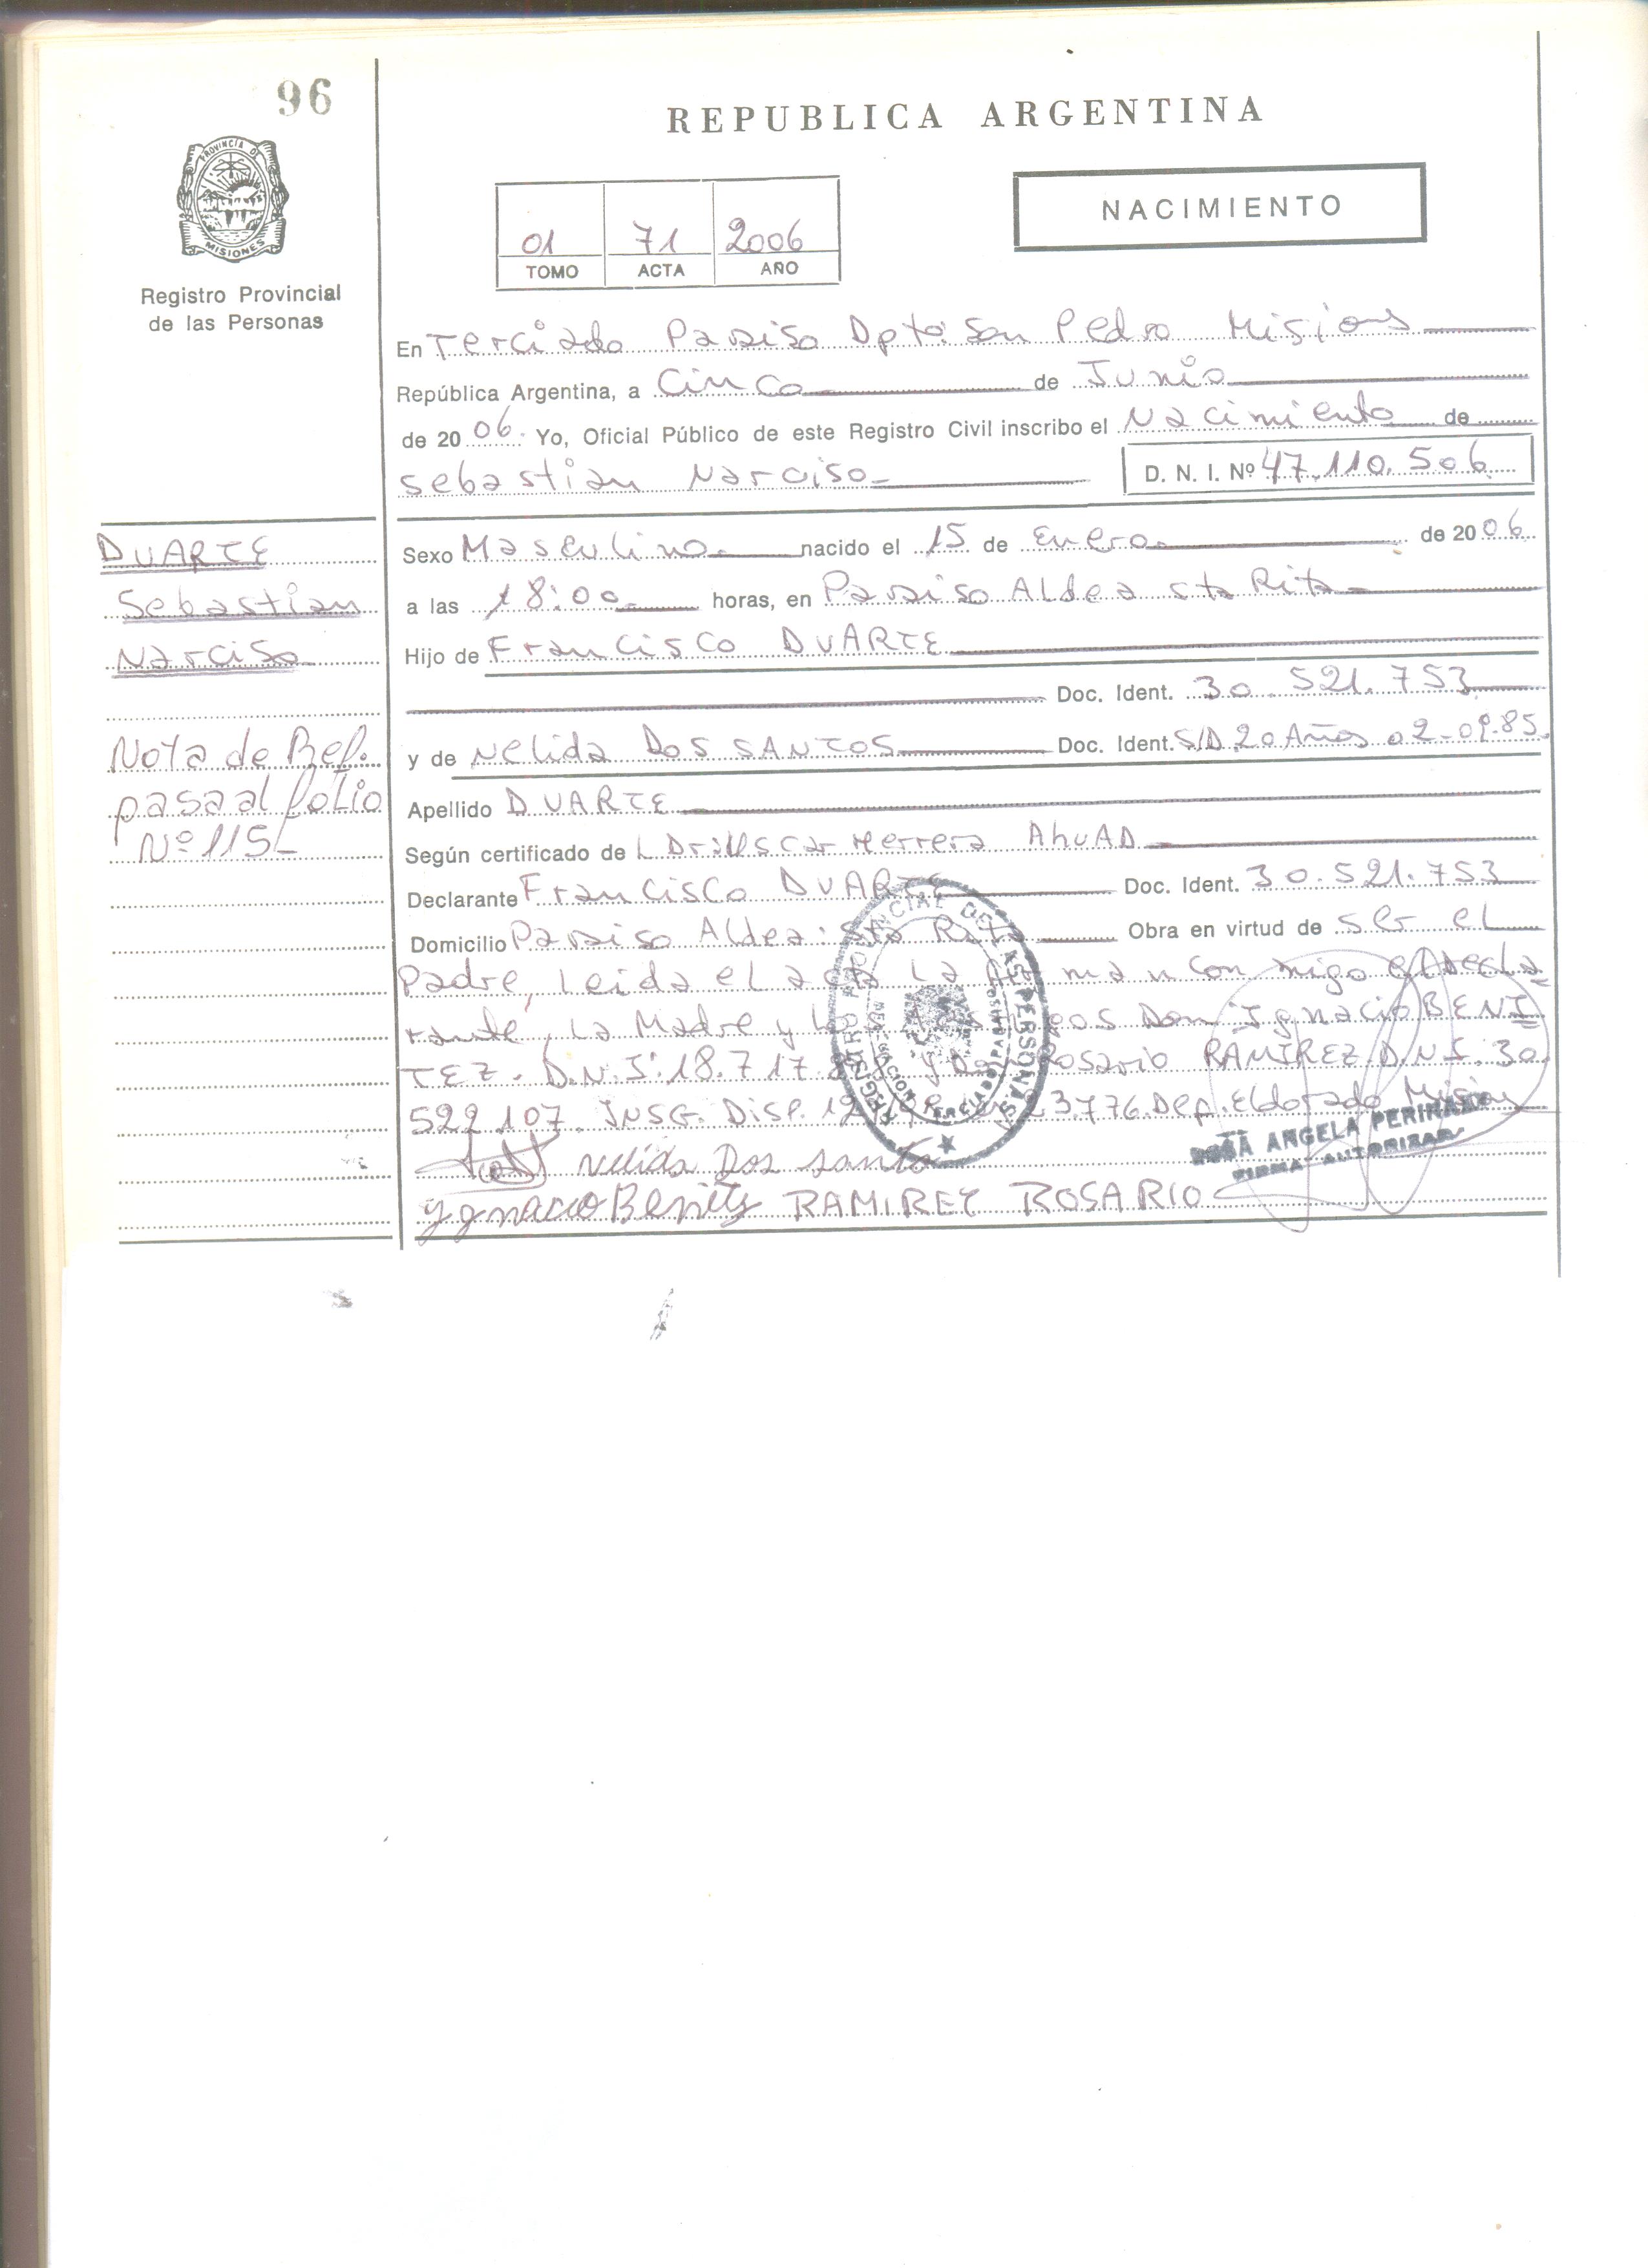 96
REPUBLICA ARGENTINA
PROVINCIA DE
MISIONES
Registro Provincial
de las Personas
01 71 2006
TOMO ACTA AÑO
NACIMIENTO
En Terciado Paraiso Dpto: San Pedro Misiones
República Argentina, a Cinco de Junio
de 2006. Yo, Oficial Público de este Registro Civil inscribo el Nacimiento de
Sebastian Narciso D. N. I. Nº 47.110.506
DUARTE
Sebastian
Narciso
Sexo Masculino nacido el 15 de Enero de 2006.
a las 18:00 horas, en Paraiso Aldea Sta Rita
Hijo de Francisco DUARTE
Doc. Ident. 30.521.753
y de Nelida DOS SANTOS Doc. Ident. S/D 20 Años 02-09-85.
Nota de Ref.
pasa al folio
Nº 115
Apellido DUARTE
Según certificado de Herrera AhuAD
Declarante Francisco DUARTE Doc. Ident. 30.521.753
Domicilio Paraiso Aldea: Sta Rita Obra en virtud de ser el
Padre, leida el acta la firman con migo el Decla
rante, La Madre y Los testigos Don Ignacio BENI
TEZ. D.N.I: 18.717. y Don Rosario RAMIREZ D.N.I. 30.
522.107. INSG. Disp. 3776. Dep. Eldorado Misiones
Nelida Dos santo
Ygnacio Benitez RAMIREZ ROSARIO
REGISTRO PROVINCIAL DE LAS PERSONAS
ROSA ANGELA
FIRMA AUTORIZAD